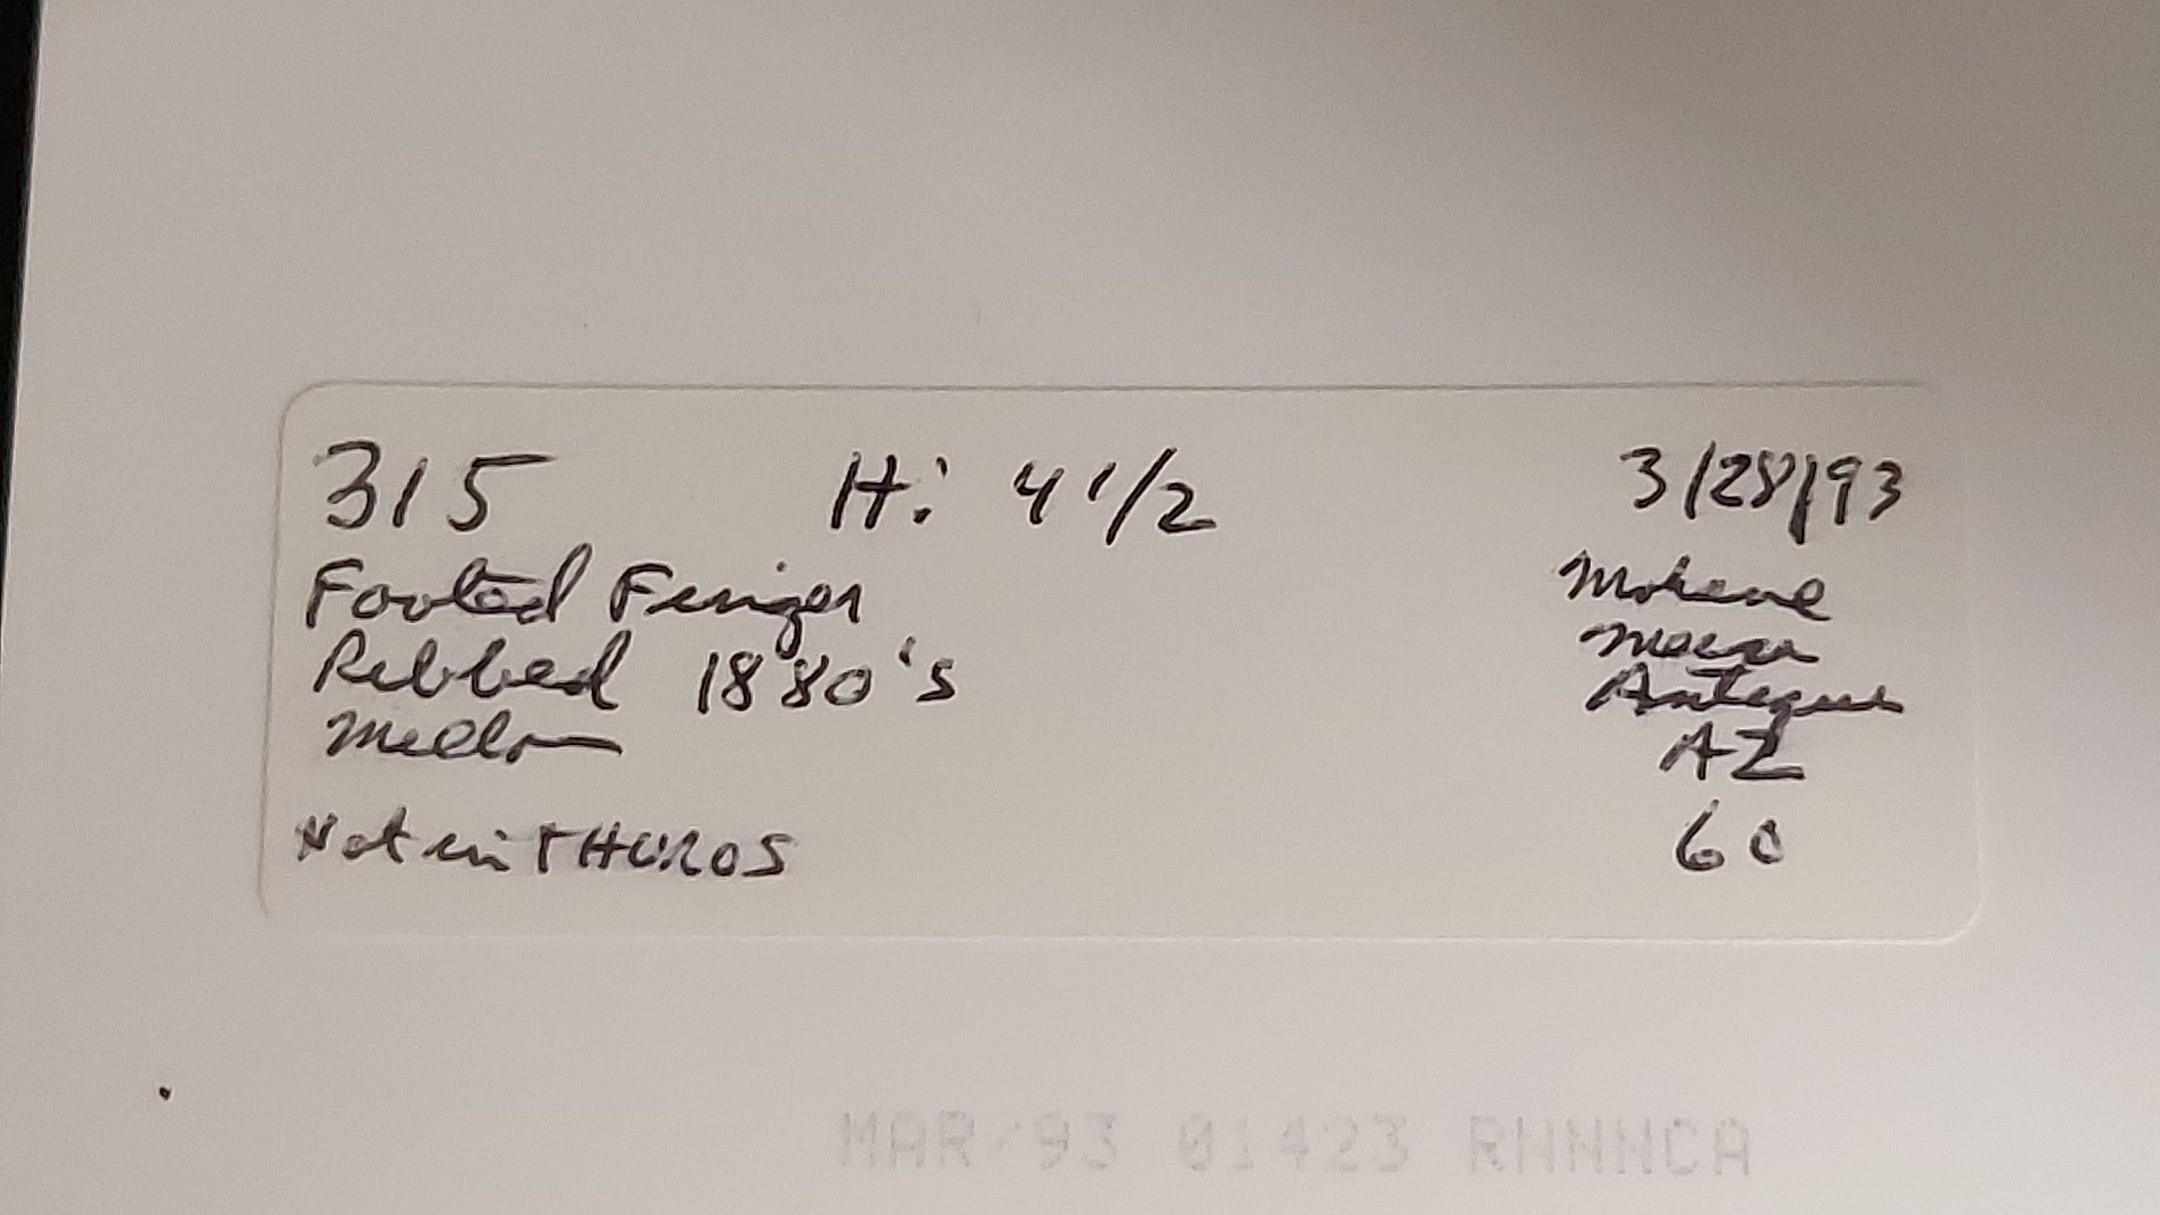 315 H: 4 1/2 3/28/93
Footed Finger
Ribbed 1880's
Mellon
Not in THUROS
Antiques
AZ
60
MAR/93 01423 RNNNCA